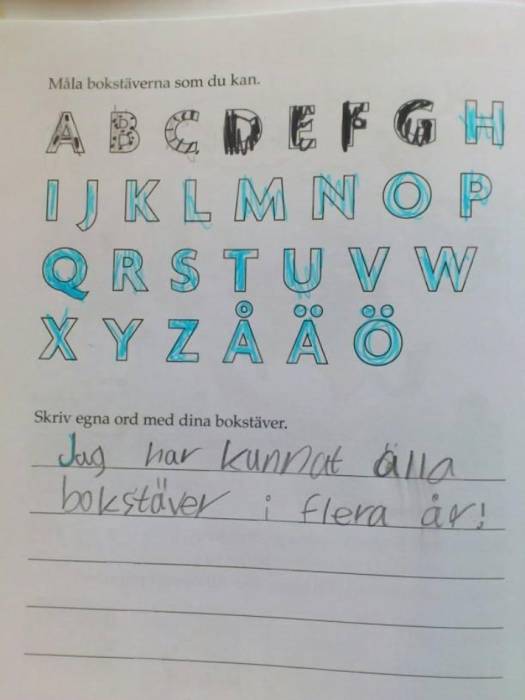 Måla bokstäverna som du kan.
A B C D E F G H
I J K L M N O P
Q R S T U V W
X Y Z Å Ä Ö
Skriv egna ord med dina bokstäver.
Jag har kunnat älla
bokstäver i flera år!